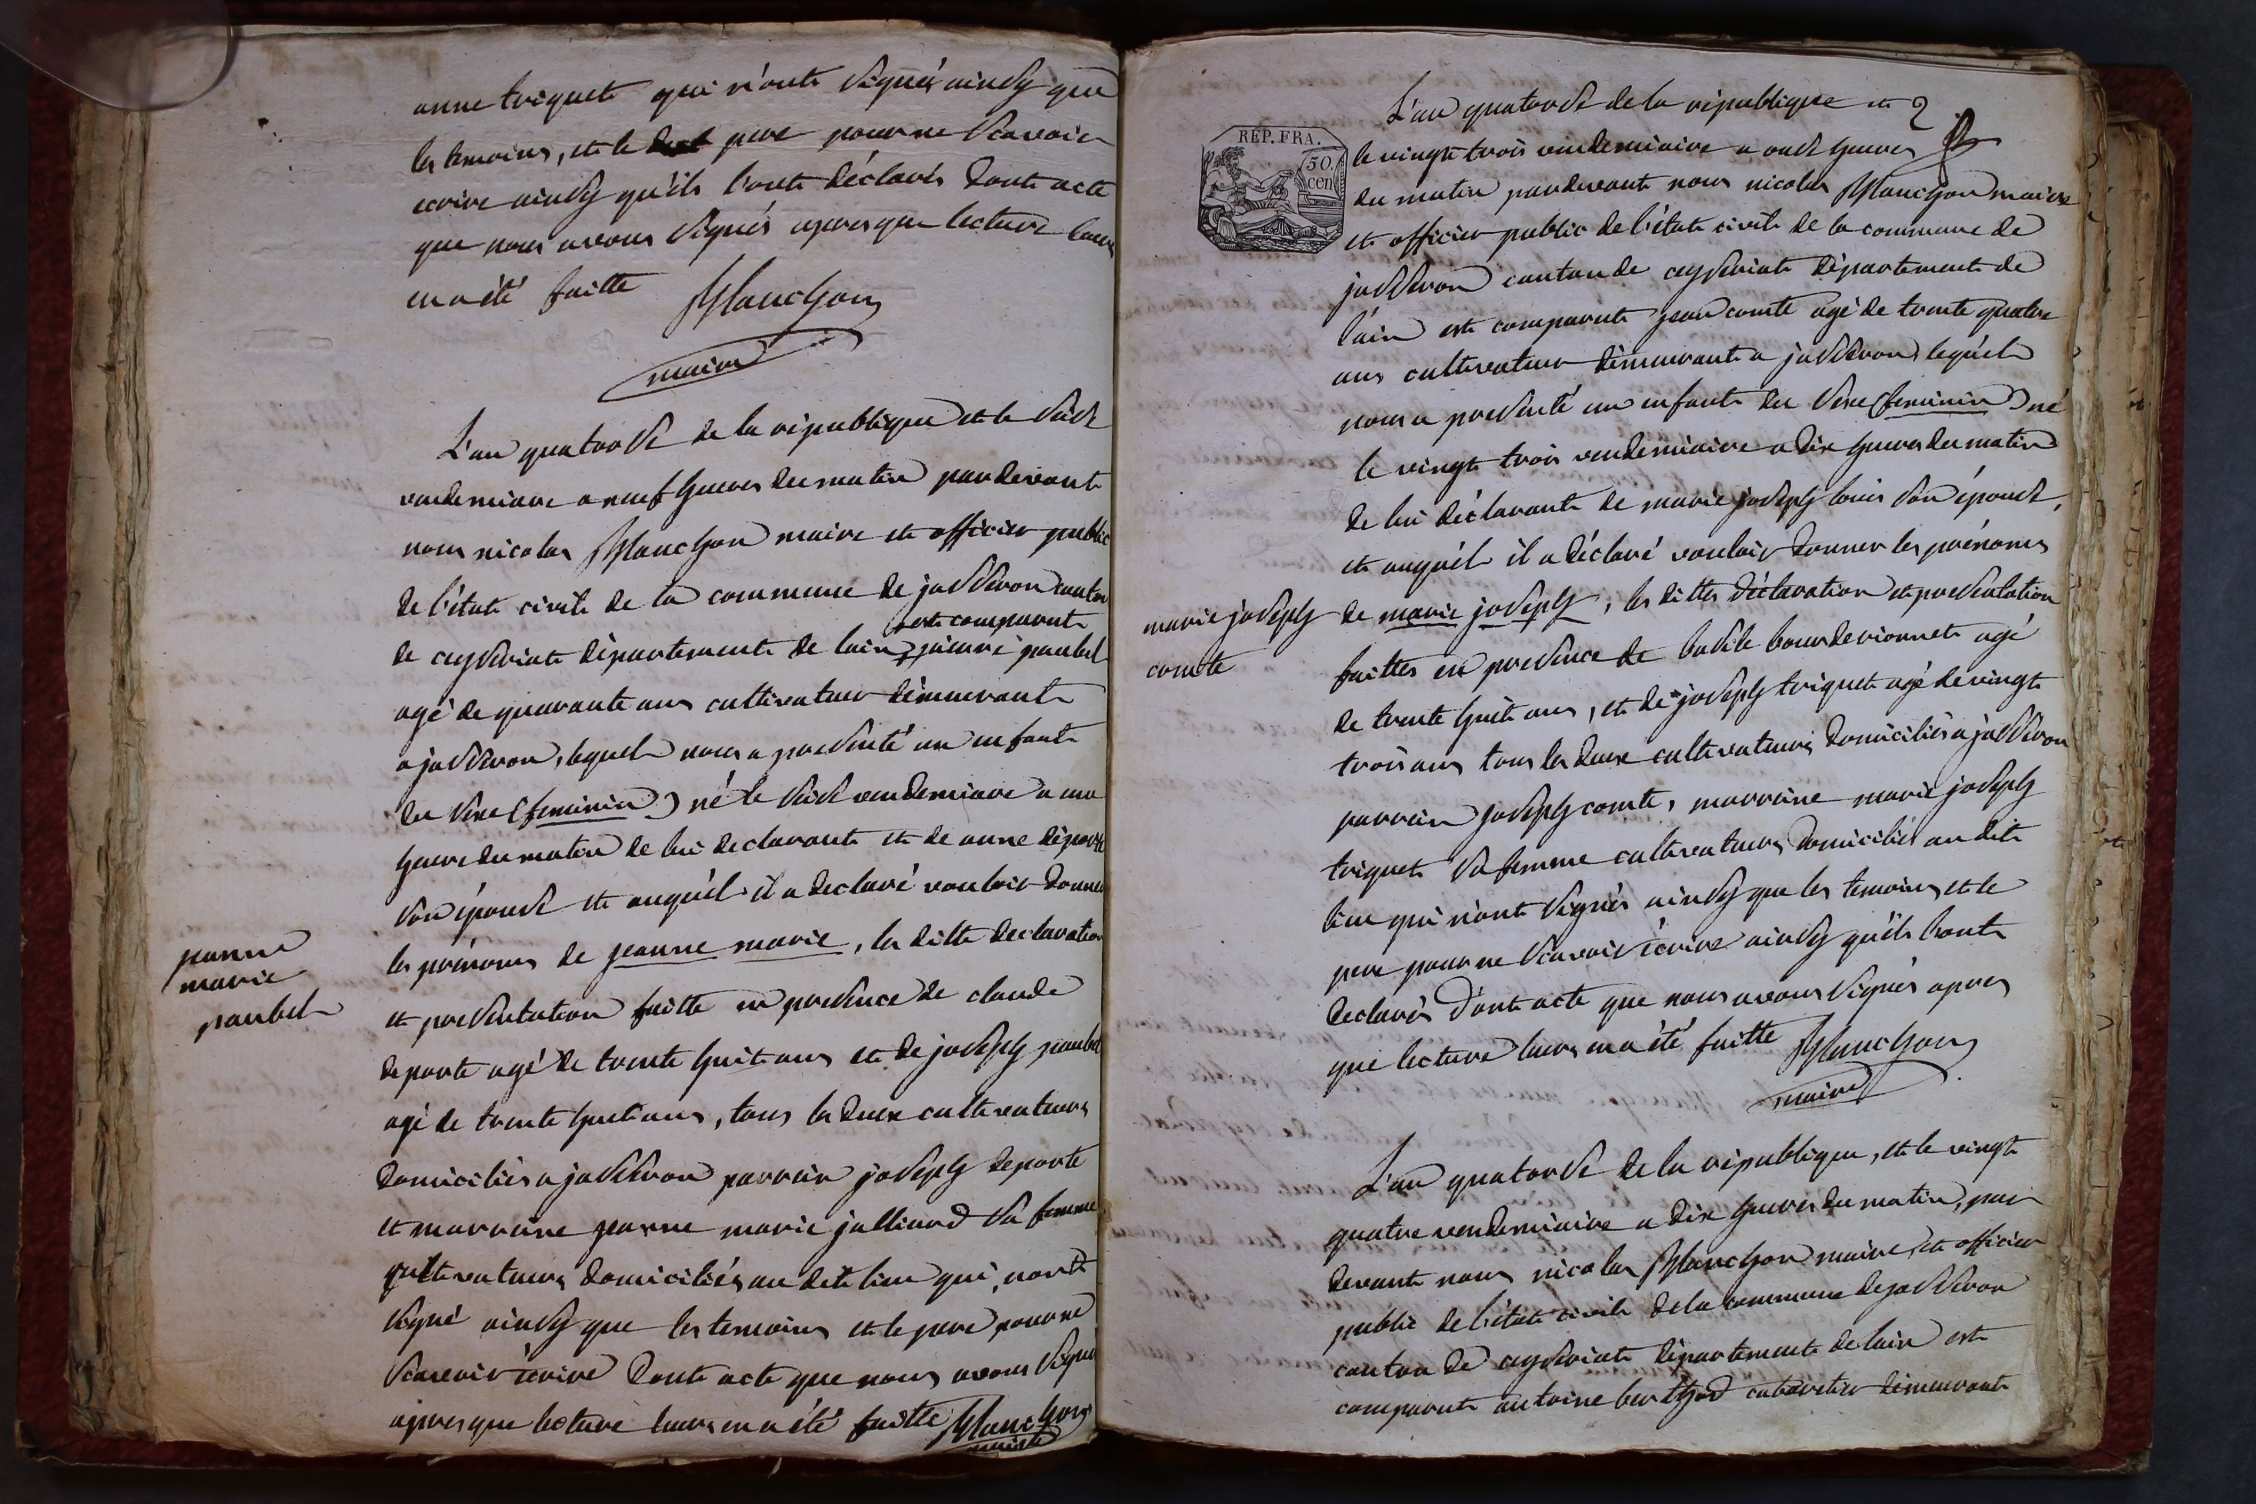 anne triquet qui n'ont signés ainsy que
les temoins, et le pere pour ne scavoir
ecrire ainsy qu'ils l'ont déclarés dont acte
que nous avons signés apres que lecture leurs
en a été faitte Planchon
maire
L'an quatorse de la république et le seise
vendemiare a neuf heures du matin pardevant
nous nicolas Planchon maire et officier public
de l'état civile de la commune de jasseron canton
est comparut
de ceyseriat département de lain, paubel
agé de quarante ans cultivateur démeurant
a jasseron, lequel nous a presenté un enfant
du sexe (feminin) né le seise vendemiare a une
heure du matin de lui declarant et de anne déporte
son épouse et auquél il a declaré vouloir donner
les prénoms de jeanne marie, les ditte declaration
jeanne
marie
paubel
et presentation faitte en presence de claude
deporte agé de trente huit ans et de joseph paubel
agé de trente huit ans, tous les deux cultivateurs
domiciliés a jasseron parrain joseph deporte
et marraine jeanne marie julliard sa femme
cultivateurs domiciliés au dit lieu qui, n'ont
signé ainsy que les temoins et le pere pour ne
scavoir écrire dont acte que nous avons signé
apres que lecture leurs en a été faitte Planchon
maire
L'an quatorse de la république et 2
REP. FRA.
50.
cen
le vingt trois vendemiaire a onse heures
du matin pardevant nous nicolas Planchon maire
et officier public de l'état civile de la commune de
jasseron canton de ceyseriat département de
l'ain est comparut jean comte agé de trente quatre
ans cultivateur démeurant a jasseron lequél
nous a presenté un enfant du sexe (feminin) né
le vingt trois vendemiaire a dix heures du matin
de lui déclarant de marie joseph louis son épouse,
et auquél il a déclaré vouloir donner les prénoms
marie joseph
comte
de marie joseph, les dittes déclaration et presentation
faittes en presence de basile bourdevionnet agé
de trente huit ans, et de joseph triquet agé de vingt
trois ans tous les deux cultivateurs domiciliés a jasseron
parrain joseph comte, marraine marie joseph
triquet sa femme cultivateurs domiciliés au dit
lieu qui n'ont signés ainsy que les temoins et le
pere pour ne scavoir écrire ainsy qu'ils l'ont
declarés d'ont acte que nous avons signés apres
que lecture leurs en a été faitte Planchon
maire
L'an quatorse de la république, et le vingt
quatre vendemiaire a dix heures du matin, par
devant nous nicolas Planchon maire, et officier
public de l'état civile de la commune de jasseron
canton de ceyseriat département de lain est
comparut antoine berthod cabaretier démeurant